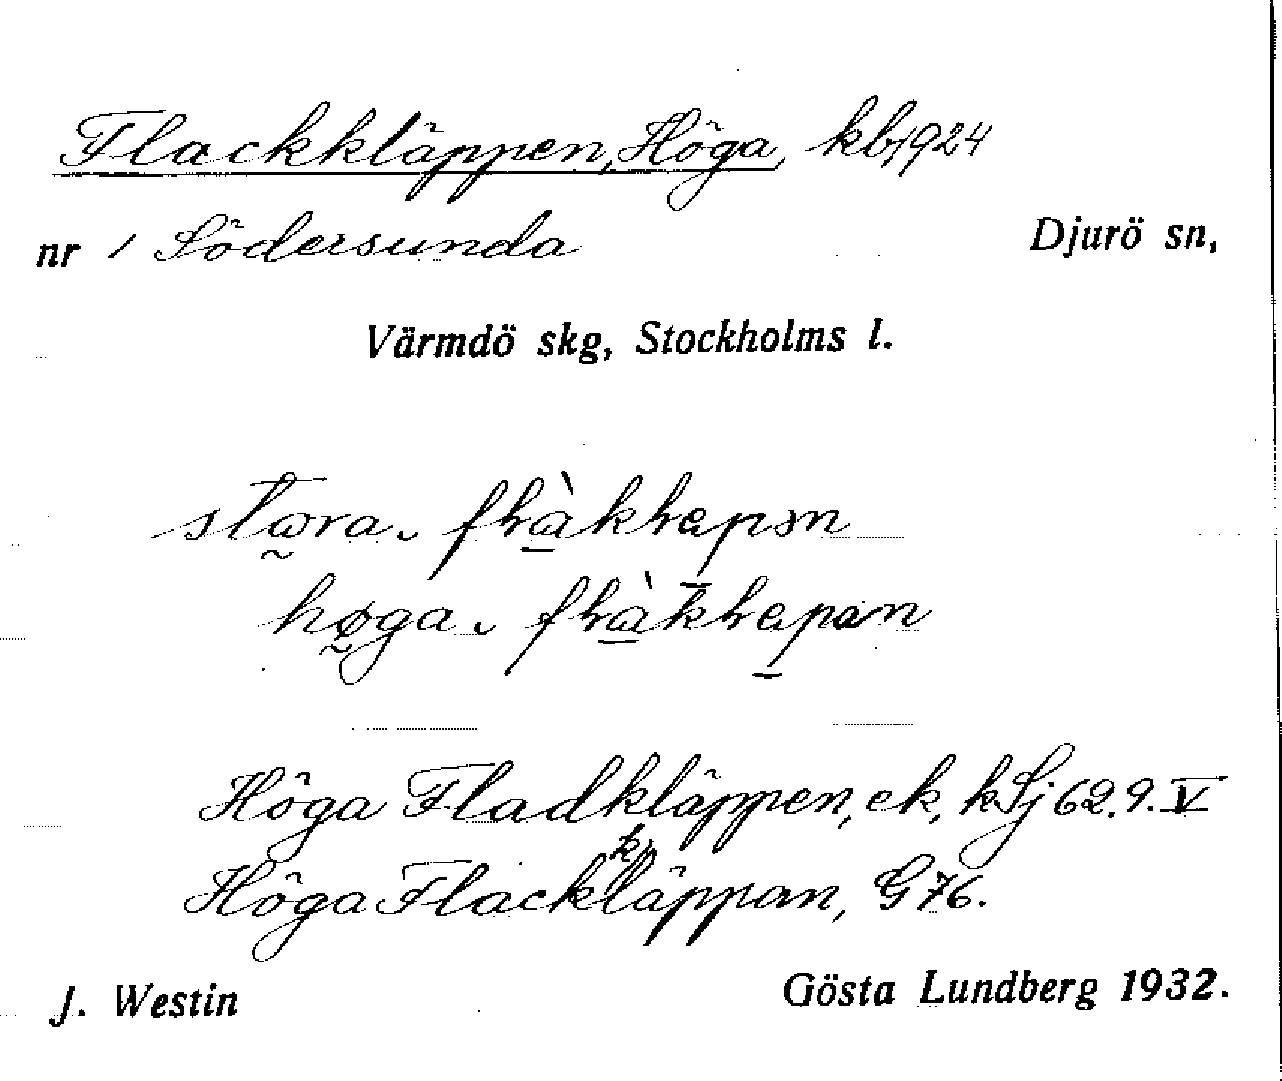 Flackkläppen, Höga, kbl 1924
nr 1 Södersunda Djurö sn,
Värmdö skg, Stockholms l.
höga
Höga Fladkläppen, ek, kSj 62.9.V
Höga Flackkläppan, G 76.
J. Westin Gösta Lundberg 1932.